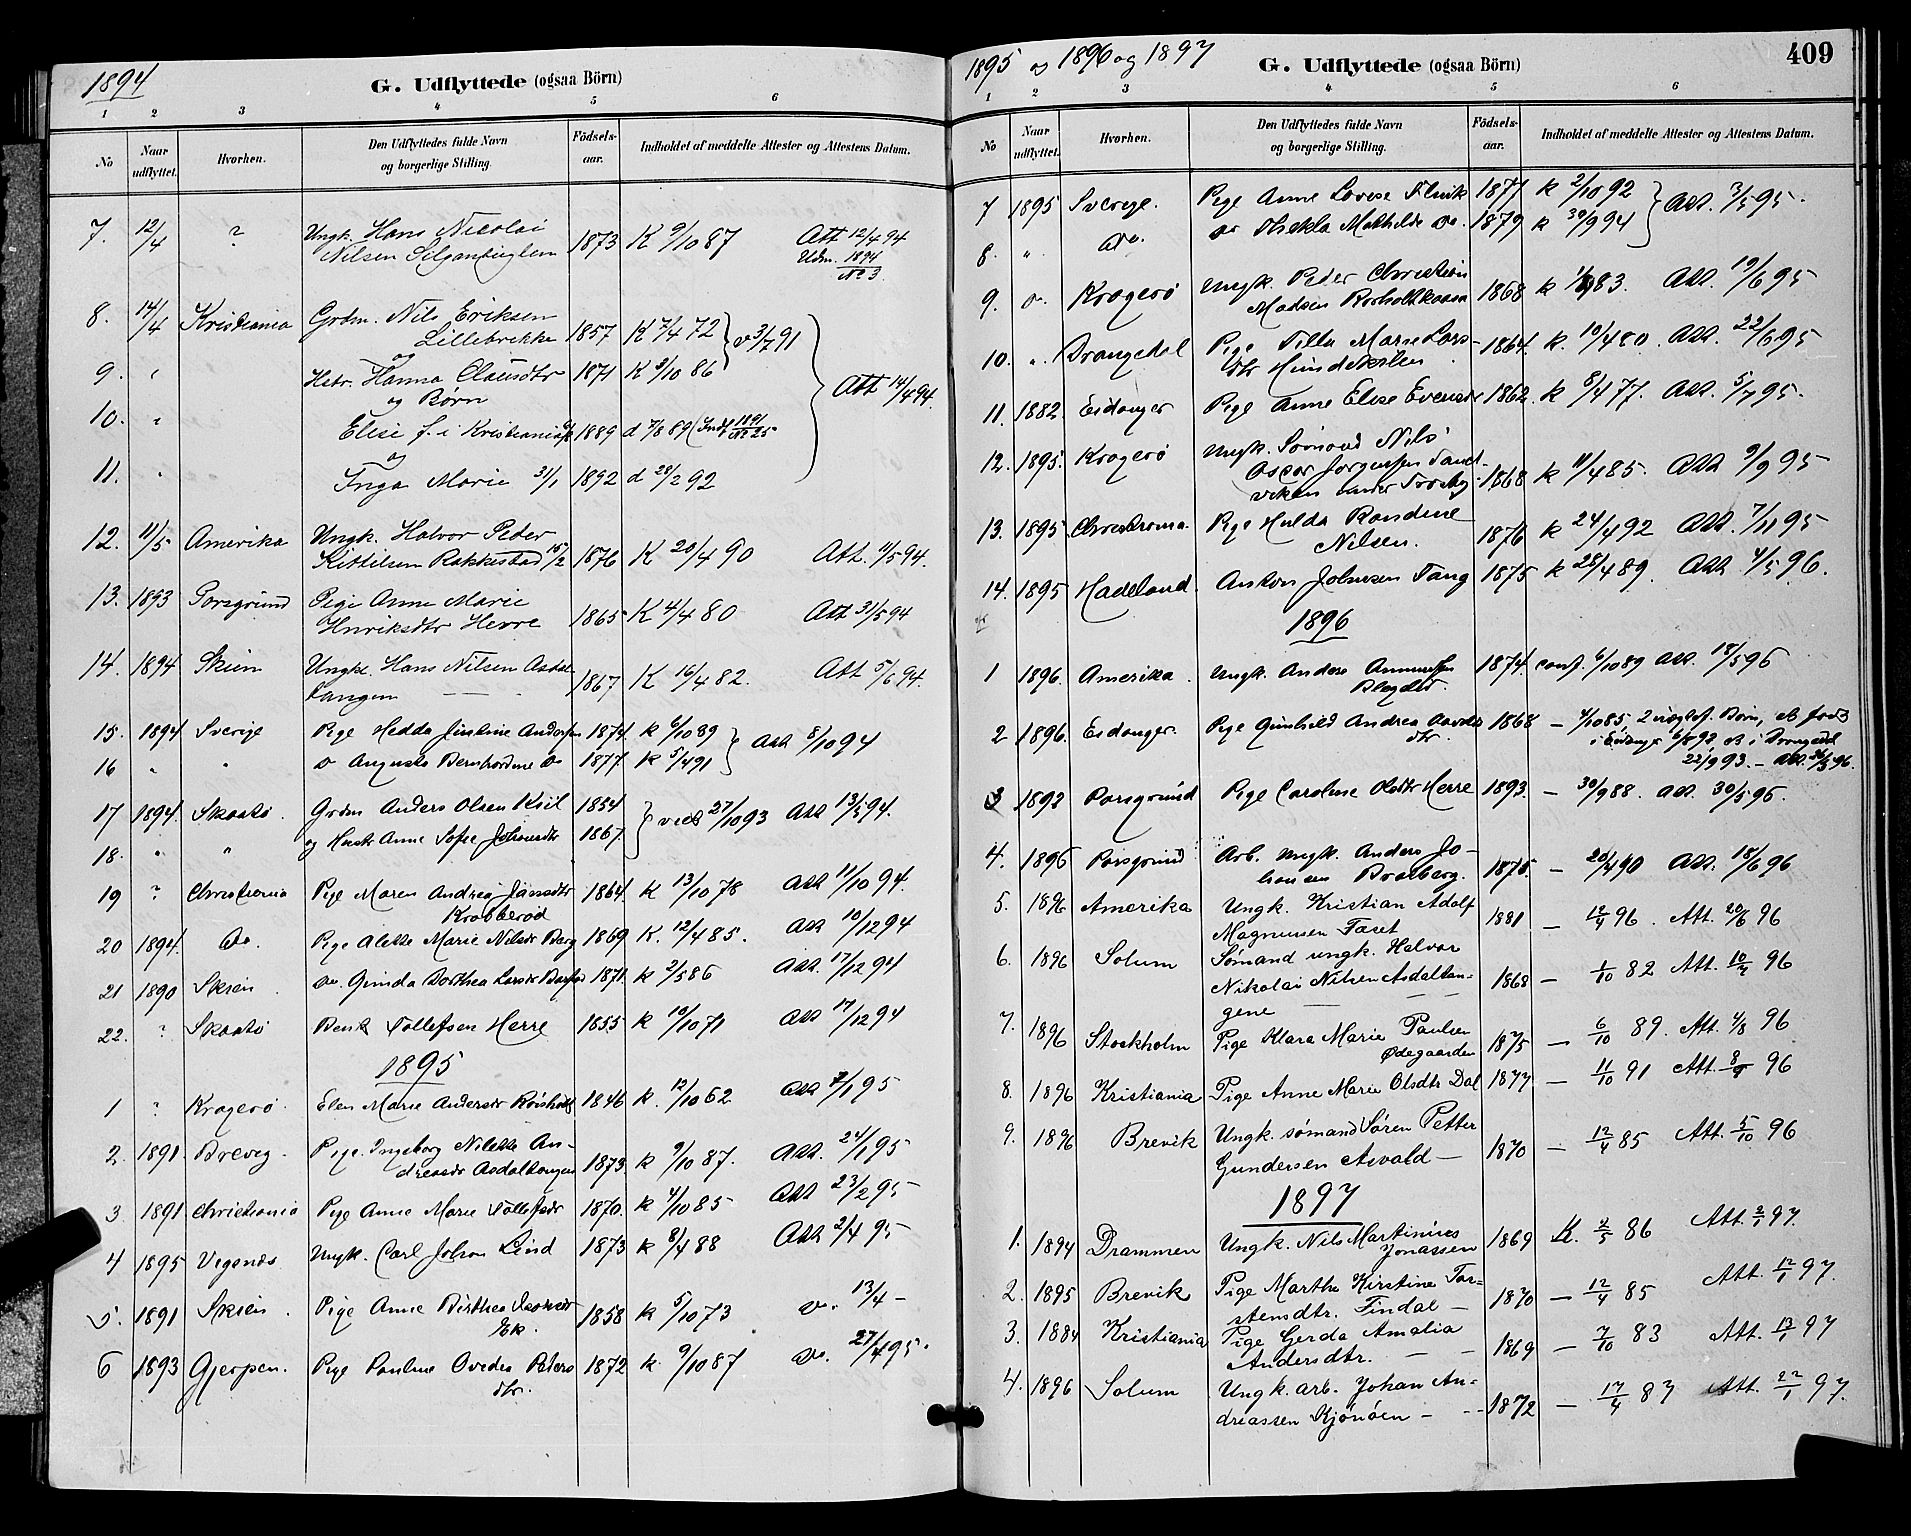 1894
G. Udflyttede (ogsaa Börn)
1 2 3 4 5 6
No Naar udflyttet. Hvorhen. Den Udflyttedes fulde Navn og borgerlige Stilling. Födsels-aar. Indholdet af meddelte Attester og Attestens Datum.
7. 12/4 ? Ungk. Hans Nicolai
Nilsen 1873 K 9/10 87 Att 12/4 94
Udm. 1894
No 3.
8. 14/4 Kristiania Grdm. Nils Eriksen
Lillebrekke 1857 K 7/4 72 v 3/7 91
og
9. " Hstr. Hanna Olausdtr 1871 K 3/10 86 Att 14/4 94.
og Børn
10. " Elise f. i Kristiania 1889 d 7/8 89 (Indf. 1891 No 25
og
11. " Inga Marie 31/1 1892 d 28/2 92
12. 11/5 Amerika Ungk. Halvor Peder
Kittilsen Rakkestad 15/2 1876 K 20/4 90 Att. 11/5 94.
13. 1893 Porsgrund Pige Anne Marie
Henriksdtr Herre 1865 K 4/4 80 Att 31/5 94
14. 1894 Skien Ungk. Hans Nilsen Asdal
tangen 1867 K 16/4 82. Att 5/6 94.
15. 1894 Sverige Pige Hedda Justine Andersen 1874. k 6/10 89
16 " " do Augusta Bernhardine do 1877. k 5/4 91 Att 8/10 94
17 1894. Skaatö. Grdm Anders Olsen Kiil 1854
18. " " og Hustr Anne Sofie Johannsdtr 1867. viet 27/10 93 Att 13/5 94.
19 ? Christiania Pige Maren Andrea Jansdtr 1864. k 13/10 78 Att 11/10 94.
Krabberød
20 1894. do. Pige Alette Marie Nilsdr Berg 1869 K. 12/4 85. Att 10/12 94
21 1890 Skien. do. Gunda Dorthea Larsdr 1871. k 2/5 86 Att. 17/12 94
22. ? Skaatö Bent Tollefsen Herre 1855 k 10/10 71 Att 17/12 94
1895
1 ? Kragerö. Elen Marie Andersdr Rörholt 1846 k. 12/10 62 Att 7/1 95
2. 1891. Brevig. Pige Ingeborg Nilette An-
dreasdr Asdaltangen 1873. k 9/10 87. Att. 24/1 95
3. 1891 Christiania Pige Anne Marie Tollefsdr 1870. k 4/10 85 Att 23/2 95
4 1895 Ungk. Carl Johan Lind 1873 k 8/4 88 Att 2/4 95
5. 1891 Skien. Pige Anne Birthea Isaksdr
Ek. 1858 k 5/10 73 do. 13/4 -
6 1893 Gjerpen. Pige Pauline Ovedia Peders
dtr. 1872 k. 9/10 87 do. 27/4 95.
1895 og 1896 og 1897
G. Udflyttede (ogsaa Börn)
409
1 2 3 4 5 6
No Naar udflyttet. Hvorhen. Den Udflyttedes fulde Navn og borgerlige Stilling. Födsels-aar. Indholdet af meddelte Attester og Attestens Datum.
7 1895 Sverige. Pige Anne Lovise 1877 k 2/10 92
8. " do. do Thekla Mathilde do. 1879 k 30/9 94 Att. 3/5 95.
9. do. Kragerö Ungk. Peder Christian
Madsen 1868 k 83. Att. 19/6 95
10. " Drangedal Pige Tilla Marie Lars-
dtr 1864. k. 10/4 80. Att. 22/6 95
11. 1882 Eidanger Pige Anne Elise Evensdr 1862. k 8/4 77. Att. 5/7 95.
12. 1895. Kragerö Ungk. Sömand Nils
Oscar Jörgensen Sand-
viken under Trosby 1868 k 11/4 85. Att 9/9 95
13. 1895 Christiania. Pige Hulda Randine
Nilsen. 1876 k 24/4 92 Att. 7/11 95
14. 1895 Hadeland. Anton Johnsen Tang 1875 k 28/4 89. Att 4/5 96.
1896
1 1896. Amerika. Ungk. Anders Amundsen
1874. conf. 6/10 89 Att. 18/5 96
2 1896. Eidanger. Pige Gunhild Andrea Aavds
dtr. 1868 - 4/10 85, 2 uægtef. Børn, et född
i Eidanger 6/8 92 et i Drangedal
22/9 93. - Att. 96.
3 1893 Porsgrund Pige Caroline Olsdtr Herre 1893. - 30/9 88. Att 30/5 96.
4. 1896 Porsgrund Arb. Ungk. Anders Jo-
hansen Bratberg. 1875. - 20/4 90 Att. 18/6 96
5. 1896 Amerika Ungk. Kristian Adolf
Magnussen Faret 1881 - 12/4 96. Att. 20/6 96
6. 1896 Solum Sømand ungk. Halvor
Nikolai Nilsen Asdaltan-
gene 1868 - 1/10 82 Att. 10/7 96
7. 1896 Stockholm Pige Klara Marie Paulsen
Ødegaarden 1875 - 6/10 89. Att. 4/8 96
8. 1896 Kristiania Pige Anne Marie Olsdtr Dal 1877 - 11/10 91 Att. 8/9 96
9. 1896 Brevik Ungk. sømand Søren Petter
Gundersen Asvald - 1870 - 12/4 85 Att. 5/10 96
1897
1. 1894 Drammen Ungk. Nils Martinius
Jonassen 1869 K. 2/5 86 Att. 2/1 97.
2. 1895 Brevik Pige Marthe Kirstine Tor=
stensdtr. Findal - 1870 - 12/4 85 Att. 12/1 97.
3. 1884 Kristiania Pige Gerda Amalia
Andersdtr. - - 1869 - 7/10 83 Att. 13/1 97
4. 1896 Solum Ungk. arb. Johan An=
dreassen Kjønøen - - 1872 - 17/4 87 Att. 22/1 97.